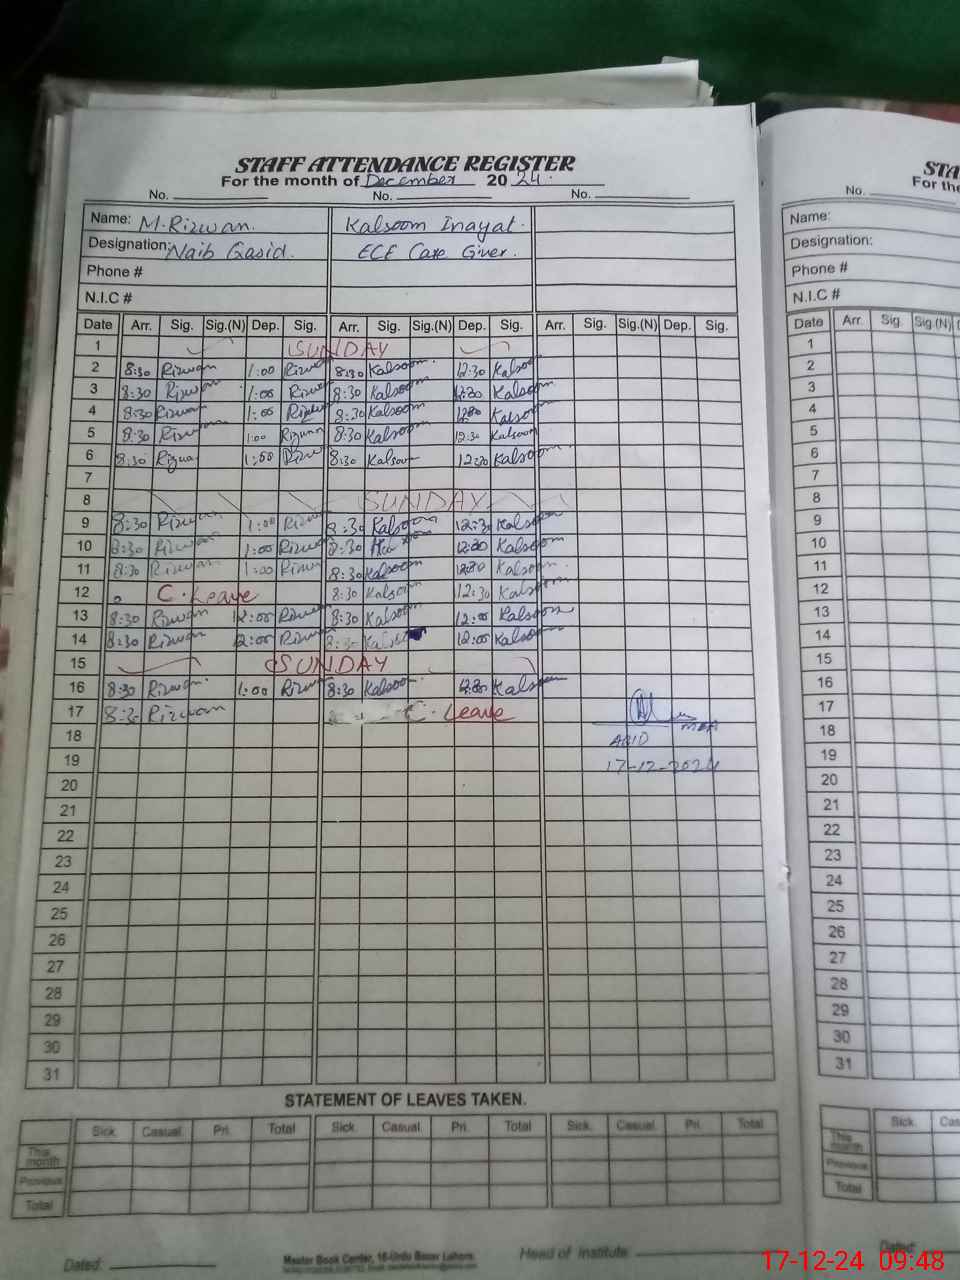 STAFF ATTENDANCE REGISTER
For the month of December 2024.
No. No. No.
Name: M.Rizwan. Kalsoom Inayat.
Designation: Naib Qasid. ECE Care Giver.
Phone #
N.I.C #
Date Arr. Sig. Sig.(N) Dep. Sig. Arr. Sig. Sig.(N) Dep. Sig. Arr. Sig. Sig.(N) Dep. Sig.
1 SUNDAY
2 8:30 Rizwan 1:00 Rizwan 8:30 Kalsoom 12:30 Kalsoom
3 8:30 Rizwan 1:00 Rizwan 8:30 Kalsoom 12:30 Kalsoom
4 8:30 Rizwan 1:00 Rizwan 8:30 Kalsoom Kalsoom
5 8:30 Rizwan 1:00 Rizwan 8:30 Kalsoom 12:30 Kalsoom
6 8:30 1:00 8:30 Kalsoom 12:30 Kalsoom
7
8 SUNDAY
9 8:30 Rizwan 1:00 Rizwan 8:30 Kalsoom 12:30 Kalsoom
10 8:30 Rizwan 1:00 Rizwan 8:30 12:30 Kalsoom
11 8:30 Rizwan 1:00 Rizwan 8:30 Kalsoom 12:30 Kalsoom
12 C.Leave 8:30 Kalsoom 12:30 Kalsoom
13 8:30 Rizwan 12:00 Rizwan 8:30 Kalsoom 12:00 Kalsoom
14 8:30 Rizwan 12:00 Rizwan 8:30 12:00 Kalsoom
15 SUNDAY
16 8:30 Rizwan 1:00 Rizwan 8:30 Kalsoom 12:30 Kalsoom
17 8:30 Rizwan C.Leave
18 ABID
19 17-12-2024
20
21
22
23
24
25
26
27
28
29
30
31
STATEMENT OF LEAVES TAKEN.
Sick. Casual. Pri. Total Sick. Casual. Pri. Total Sick. Casual. Pri. Total
This month
Previous
Total
Dated: Master Book Center, 16-Urdu Bazar Lahore. Head of Institute
STA
No.
For the
Name:
Designation:
Phone #
N.I.C #
Date Arr. Sig. Sig.(N)
1
2
3
4
5
6
7
8
9
10
11
12
13
14
15
16
17
18
19
20
21
22
23
24
25
26
27
28
29
30
31
Sick. Cas
This month
Previous
Total
Dated:
17-12-24 09:48